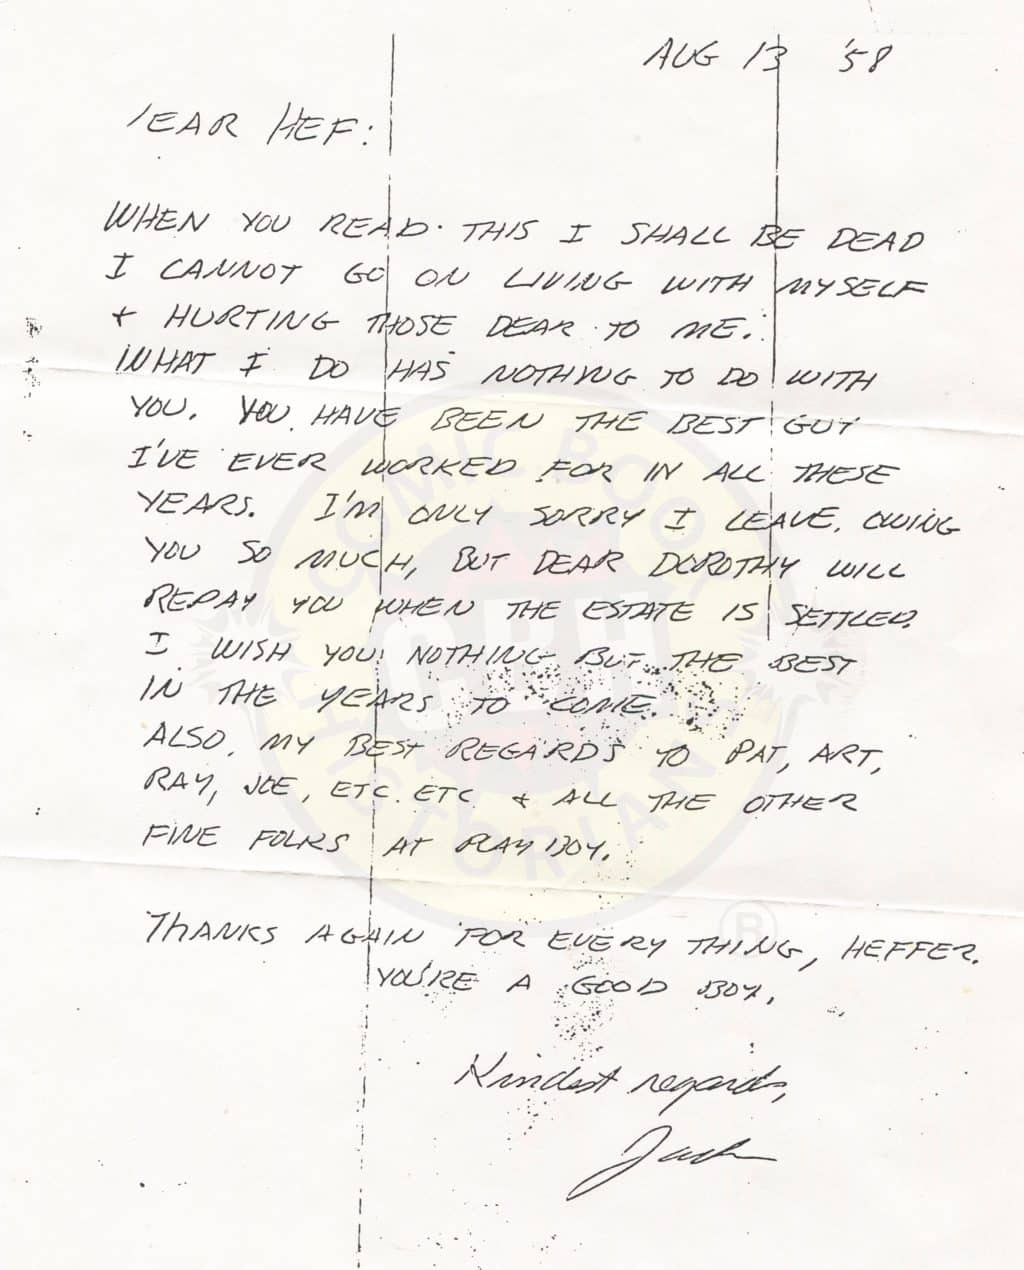 AUG 13 '58
DEAR HEF:
WHEN YOU READ THIS I SHALL BE DEAD
I CANNOT GO ON LIVING WITH MYSELF
+ HURTING THOSE DEAR TO ME.
WHAT I DO HAS NOTHING TO DO WITH
YOU. YOU HAVE BEEN THE BEST GUY
I'VE EVER WORKED FOR IN ALL THESE
YEARS. I'M ONLY SORRY I LEAVE OWING
YOU SO MUCH, BUT DEAR DOROTHY WILL
REPAY YOU WHEN THE ESTATE IS SETTLED.
I WISH YOU NOTHING BUT THE BEST
IN THE YEARS TO COME.
ALSO, MY BEST REGARDS TO PAT, ART,
RAY, JOE, ETC. ETC. + ALL THE OTHER
FINE FOLKS AT PLAYBOY.
THANKS AGAIN FOR EVERY THING, HEFFER.
YOU'RE A GOOD BOY.
Kindest regards,
Jack
COMIC BOOK
CBH
HISTORIANS
®